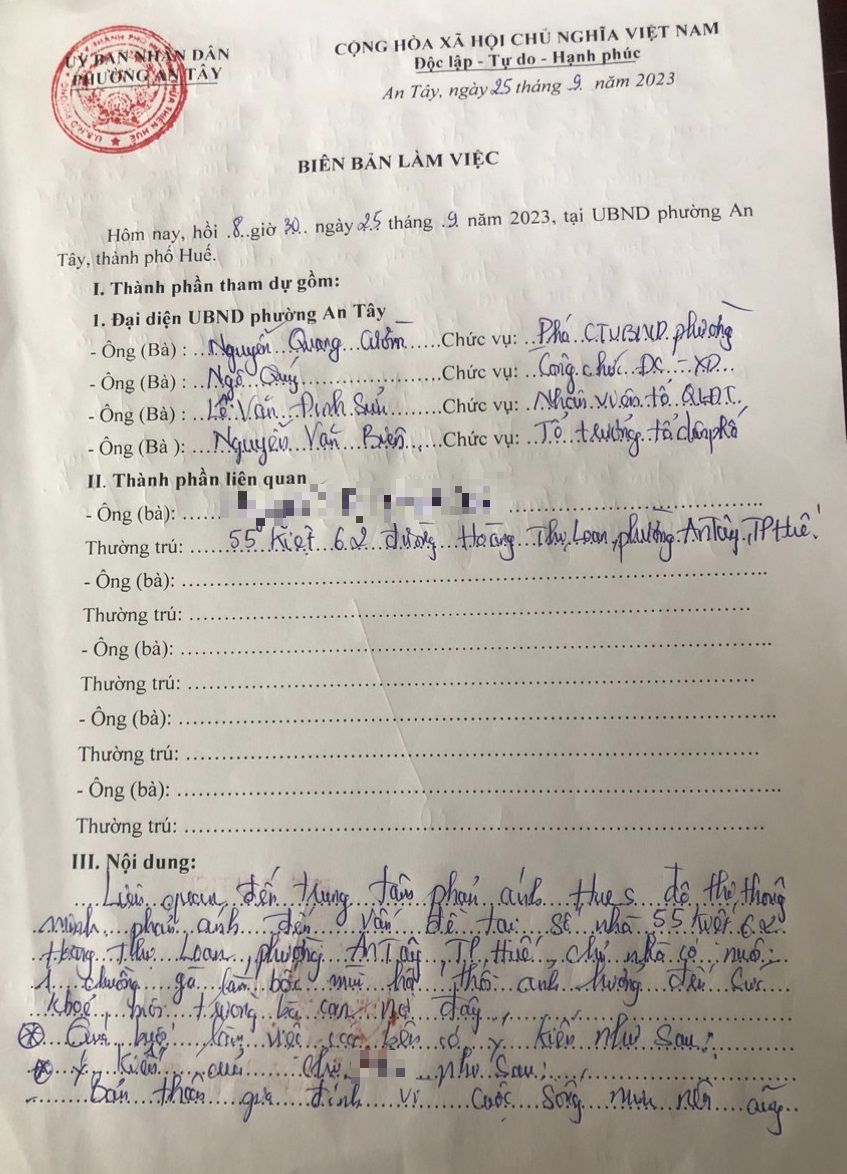 ỦY BAN NHÂN DÂN
PHƯỜNG AN TÂY
CỘNG HÒA XÃ HỘI CHỦ NGHĨA VIỆT NAM
Độc lập - Tự do - Hạnh phúc
An Tây, ngày 25 tháng 9 năm 2023
BIÊN BẢN LÀM VIỆC
Hôm nay, hồi 8 giờ 30 ngày 25 tháng 9 năm 2023, tại UBND phường An
Tây, thành phố Huế.
I. Thành phần tham dự gồm:
1. Đại diện UBND phường An Tây
- Ông (Bà) : Nguyễn Quang Chức vụ: Phó CTUBND phường
- Ông (Bà) : Ngô Quý Chức vụ: Công chức ĐC - XD
- Ông (Bà) : Lê Văn Đình Sửu Chức vụ: Nhân viên tổ QLĐT
- Ông (Bà ): Nguyễn Văn Biên Chức vụ: Tổ trưởng tổ dân phố
II. Thành phần liên quan
- Ông (bà):
Thường trú: 55 Kiệt 62 đường Hoàng Thị Loan, phường An Tây, TP Huế.
- Ông (bà):
Thường trú:
- Ông (bà):
Thường trú:
- Ông (bà):
Thường trú:
- Ông (bà):
Thường trú:
III. Nội dung:
Liên quan đến trung tâm phản ánh Hue S đô thị thông
minh phản ánh đến vấn đề tại số nhà 55 Kiệt 62
Hoàng Thị Loan, phường An Tây, TP Huế, chủ nhà có nuôi
1 chuồng gà làm bốc mùi hôi thối ảnh hưởng đến sức
khoẻ, môi trường bà con nơi đây,
Qua buổi làm việc các bên có ý kiến như sau:
Ý kiến của chị như sau:
- Bản thân gia đình vì cuộc sống mưu nên cũng